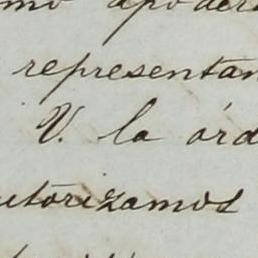 mo apoder
representan
V. la órd
utorizamos